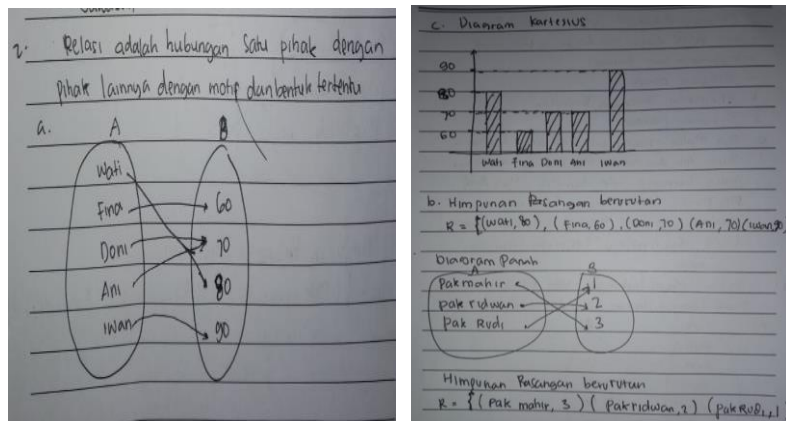 2. Relasi adalah hubungan satu pihak dengan
pihak lainnya dengan motif dan bentuk tertentu
a. A B
Wati
Fina 60
Doni 70
Ani 80
Iwan 90
c. Diagram kartesius
90
80
70
60
Wati Fina Doni Ani Iwan
b. Himpunan Pasangan berurutan
R = {(Wati, 80), (Fina, 60), (Doni, 70) (Ani, 70) (Iwan, 90
Diagram Panah
A B
Pak mahir 1
pak ridwan 2
pak Rudi 3
Himpunan Pasangan berurutan
R = {(Pak mahir, 3) (Pak ridwan, 2) (pak Rudi, 1